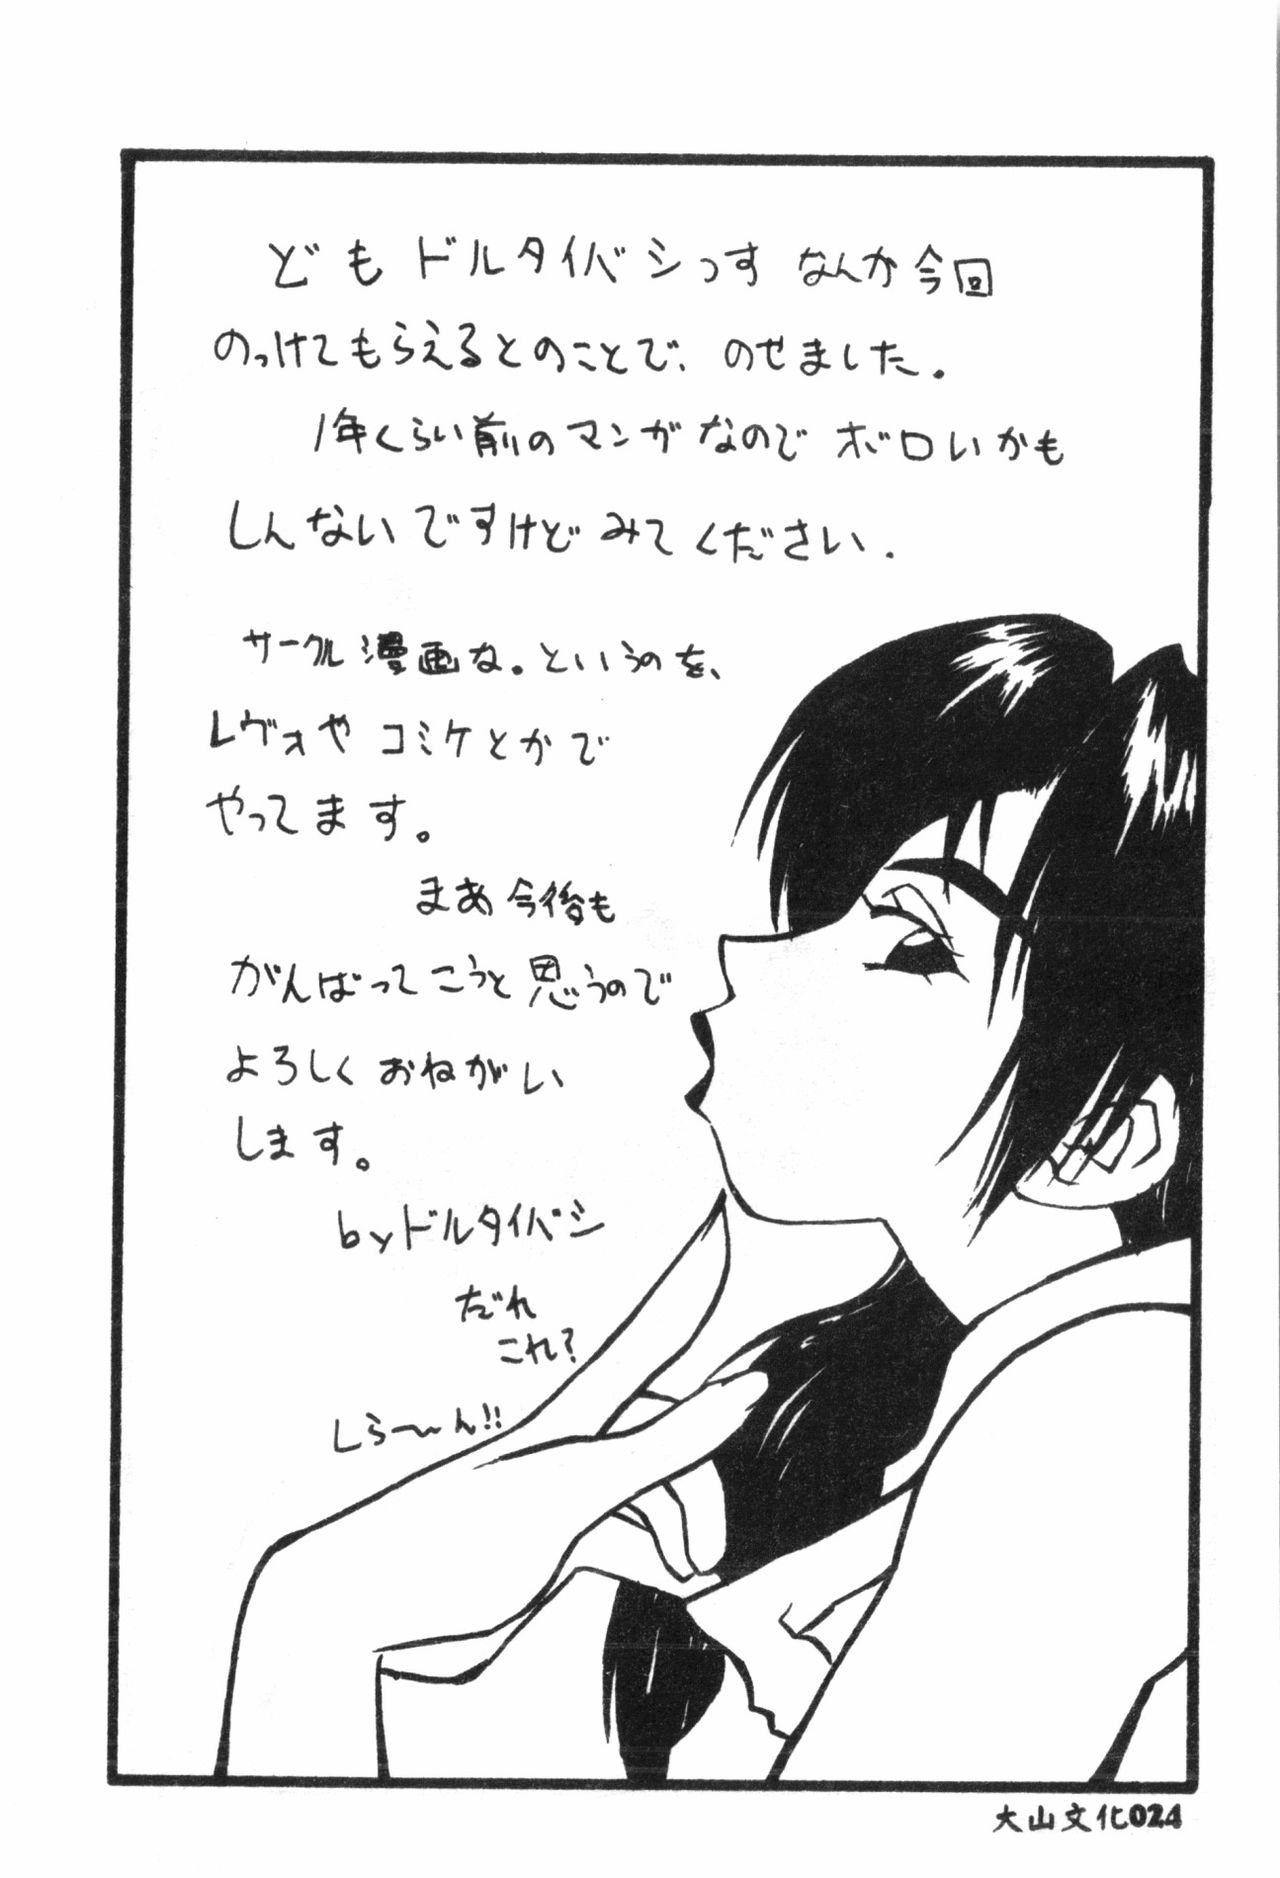 ども ドルタイバシっす なんか今回
のっけてもらえるとのことで、のせました.
1年くらい前のマンガなので ボロいかも
しんないですけど みてください.
サークル漫画な。というのを、
レヴォや コミケとかで
やってます。
まあ今後も
がんばってこうと思うので
よろしく おねがい
します。
byドルタイバシ
だれ
これ?
しら〜ん!!
大山文化024